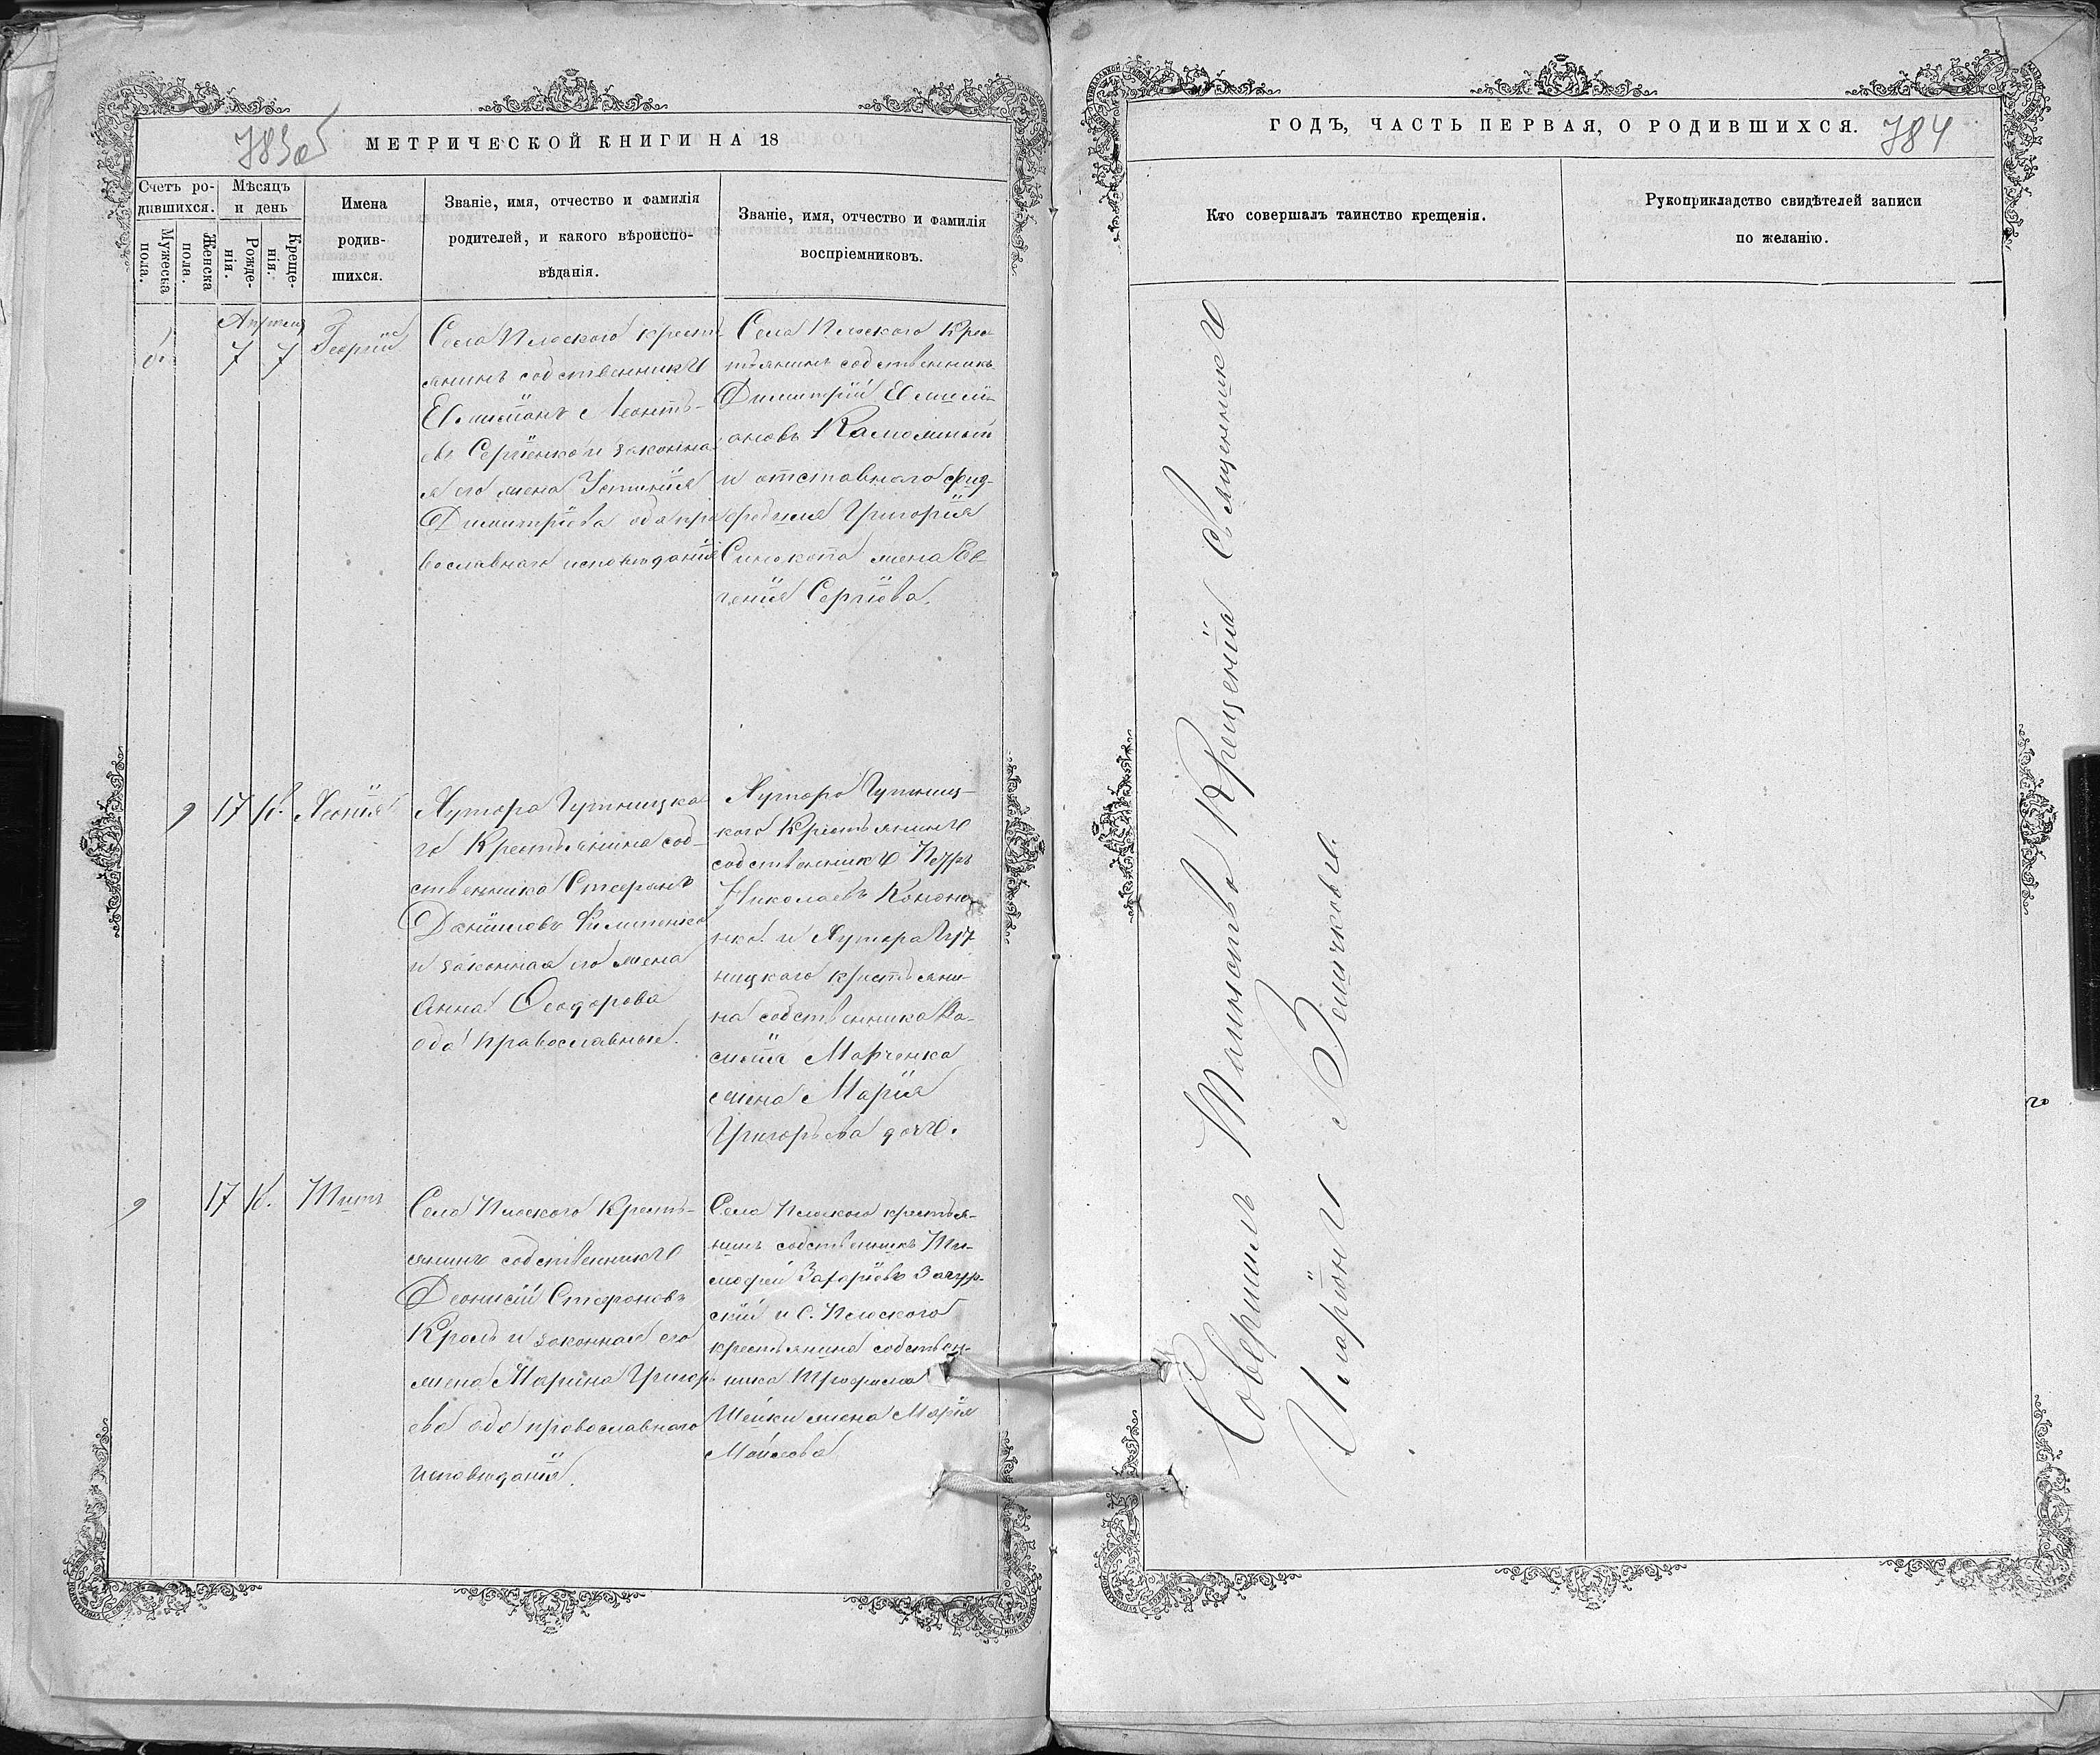 783об
МЕТРИЧЕСКОЙ КНИГИ НА 18
Счетъ ро-
дившихся.
Мужеска
пола.
Женска
пола.
Мѣсяцъ
и день
Рожде-
нія.
Креще-
нія.
Имена
родив-
шихся.
Званіе, имя, отчество и фамилія
родителей, и какого вѣроиспо-
вѣданія.
Званіе, имя, отчество и фамилія
воспріемниковъ.
Апреля
8. 7 7 Георгій
Села Плоского кресть
янинъ собственникъ
Емиліанъ Леонть-
евъ Сергіенко и законна
я его жена Устинія
Димитріева оба пра
вославнаго исповѣданія
Села Плоского Крес
тьянинъ собственникъ
Димитрій Емилі-
ановъ
и отставного
Григорія
жена Ев-
генія Сергіева.
9 17 18. Ксенія
Хутора Гутницка
го Крестьянина соб-
ственника Стефанъ
Даніиловъ Филипенко
и законная его жена
Анна Феодорова
оба православные.
Хутора Гутниц-
кого Крестьянинъ
собственникъ Петръ
Николаевъ Кононе
нко. и Хутора Гут
ницкого крестьяни-
на собственника Ва-
силія Марченка
жена Марія
Григорьева дочь.
9 17 18. Титъ
Села Плоского Кресть-
янинъ собственникъ
Деонисій Стефановъ
Кроль и законная его
жена Марина Григорь
ева оба православнаго
исповѣданія.
Села Плоского крестья-
нинъ собственникъ Ти-
мофей Захаріевъ Загур-
скій и С. Плоского
крестьянина собствен-
ника Трофима
Шейки жена Марія
Моисеева
ГОДЪ, ЧАСТЬ ПЕРВАЯ, О РОДИВШИХСЯ.
784
Кто совершалъ таинство крещенія.
Рукоприкладство свидѣтелей записи
по желанію.
Совершилъ Таинство Крещенія Священникъ
Иларіонъ